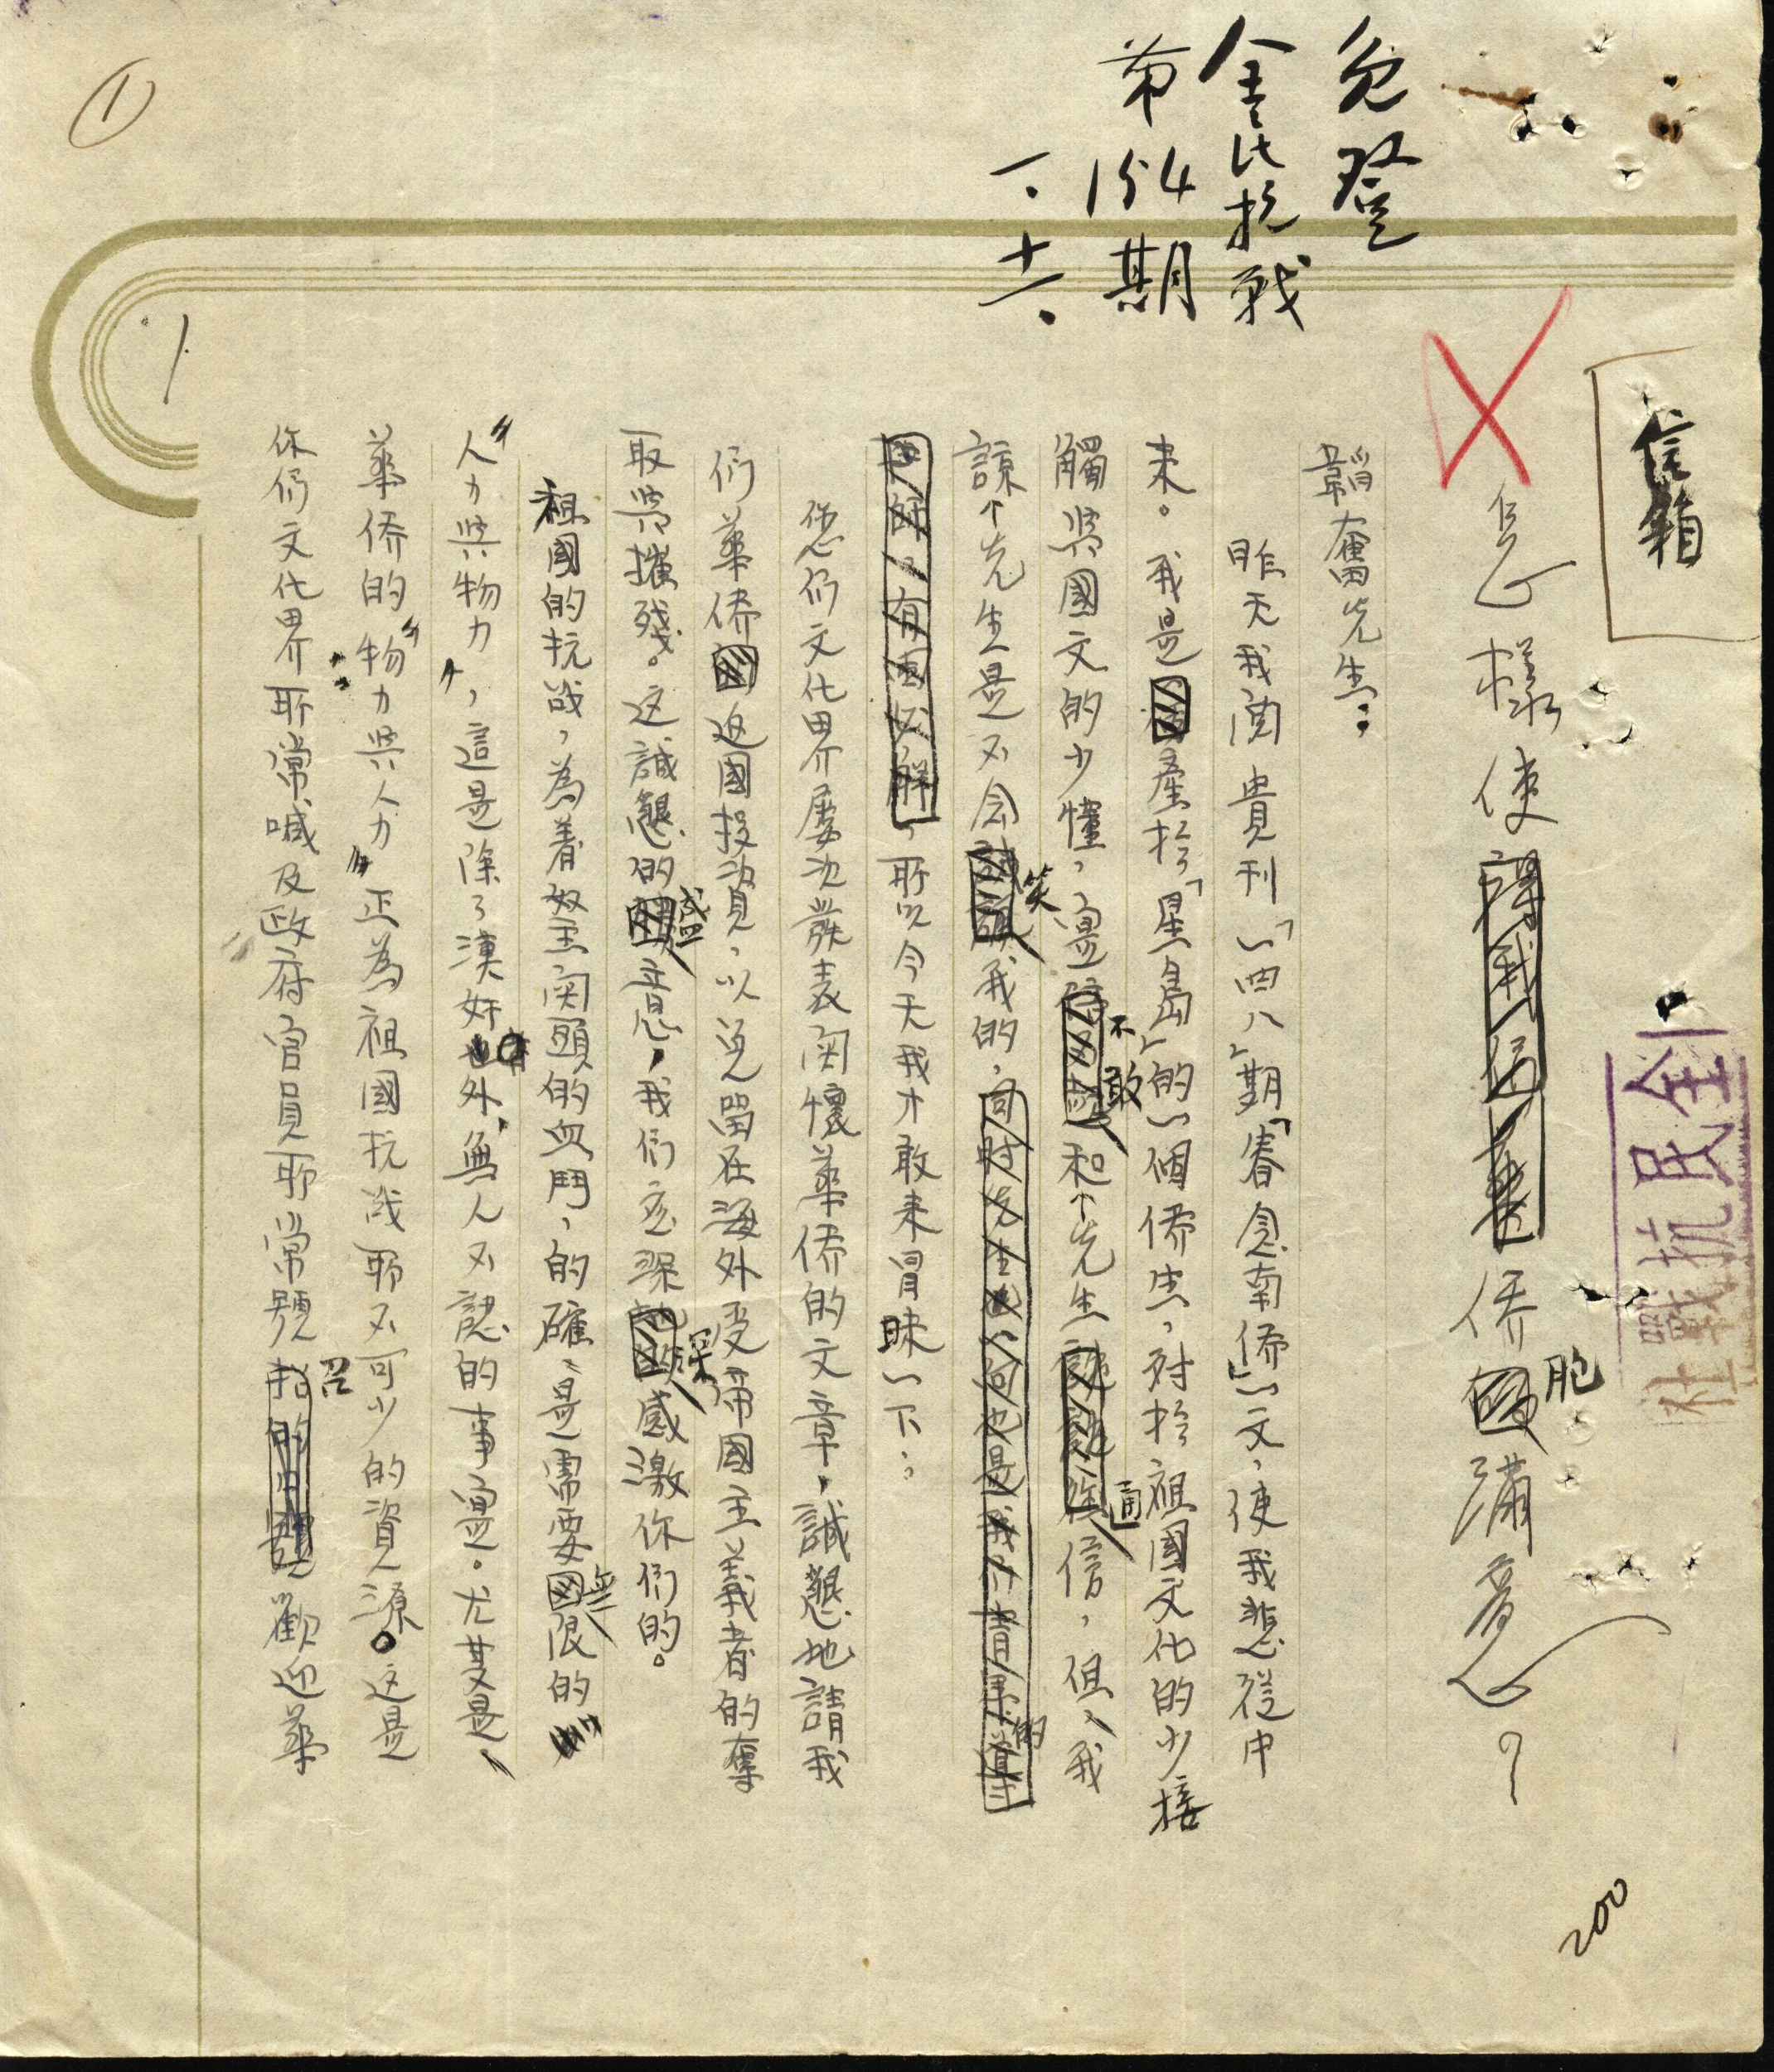 信箱
全民抗戰社
免登
全民抗战
第154期
一、十六、
怎樣使僑胞滿意?
韜奮先生:
昨天我閱貴刊「一四八」期「眷念南僑」一文,使我悲從中
來。我是產於「星島」的一個僑生,對於祖國文化的少接
觸與國文的少懂,寔不敢和先生通信,但、我
諒先生是不会笑我的,
所以今天我才敢来冒昧一下:
您们文化界屡次發表関懷華僑的文章,誠懇地請我
们華僑返國投資,以免留在海外受帝國主義者的奪
取與摧殘。这誠懇的盛意,我们应深深感激你们的。
祖國的抗战,為着努力関頭的血鬥,的確、是需要無限的
“人力與物力”,這是除了漢奸外,無人不認的事寔。尤其是、
華僑的“物力與人力”正為祖國抗战所不可少的資源。这是
你们文化界所常喊及政府官員所常號召歡迎華
①
1
200